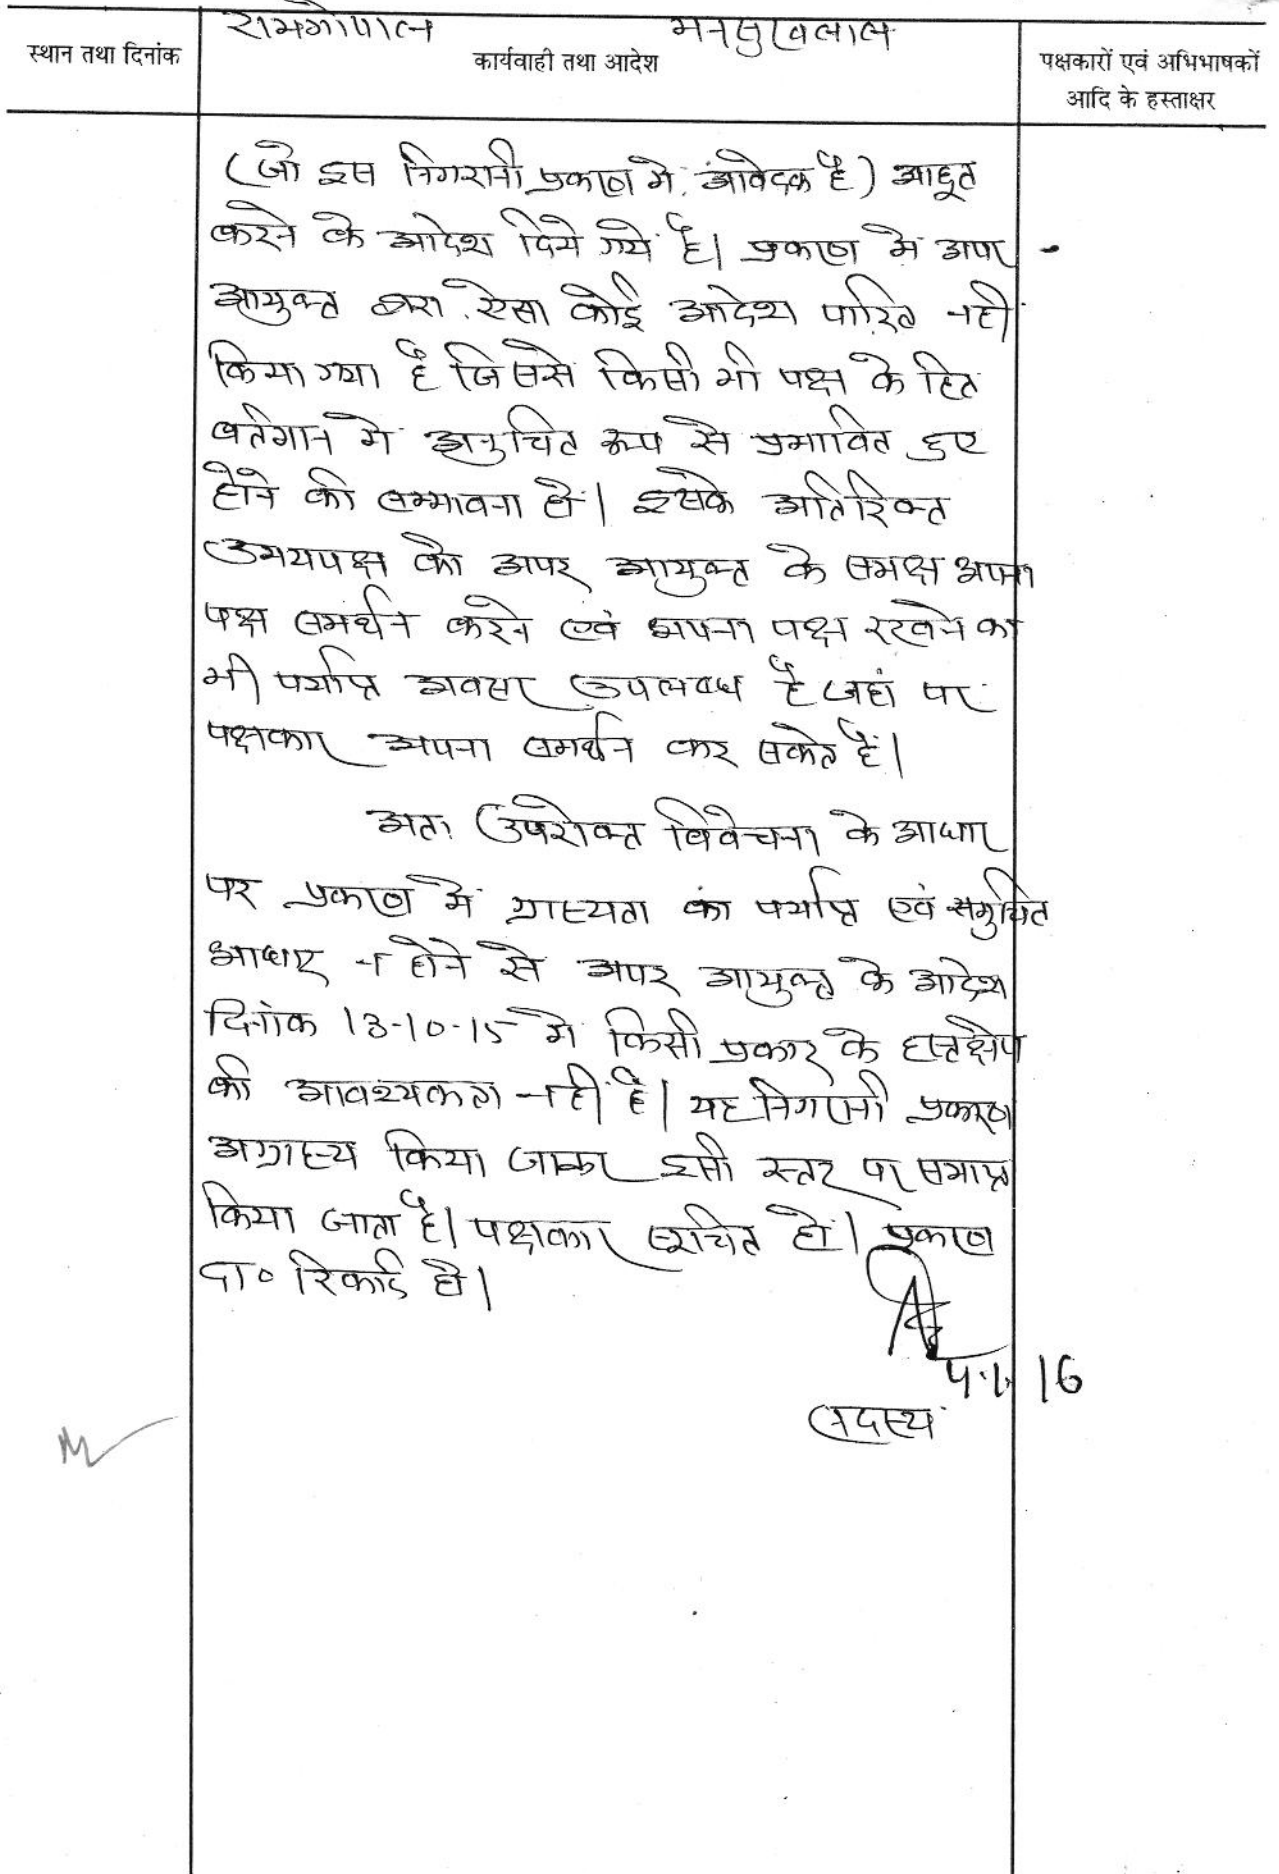 रामगोपाल मनसुखलाल
स्थान तथा दिनांक
कार्यवाही तथा आदेश
पक्षकारों एवं अभिभाषकों
आदि के हस्ताक्षर
(जो इस निगरानी प्रकरण में आवेदक है) आहूत
करने के आदेश दिये गये हैं। प्रकरण में अपर
आयुक्त द्वारा ऐसा कोई आदेश पारित नहीं
किया गया है जिससे किसी भी पक्ष के हित
वर्तमान में अनुचित रूप से प्रभावित हुए
होने की सम्भावना हो। इसके अतिरिक्त
उभयपक्ष को अपर आयुक्त के समक्ष अपना
पक्ष समर्थन करने एवं अपना पक्ष रखने का
भी पर्याप्त अवसर उपलब्ध है जहां पर
पक्षकार अपना समर्थन कर सकते हैं।
अतः उपरोक्त विवेचना के आधार
पर प्रकरण में ग्राह्यता का पर्याप्त एवं समुचित
आधार न होने से अपर आयुक्त के आदेश
दिनांक 13-10-15 में किसी प्रकार के हस्तक्षेप
की आवश्यकता नहीं है। यह निगरानी प्रकरण
अग्राह्य किया जाकर इसी स्तर पर समाप्त
किया जाता है। पक्षकार सूचित हों। प्रकरण
दा० रिकार्ड हो।
4.1.16
सदस्य